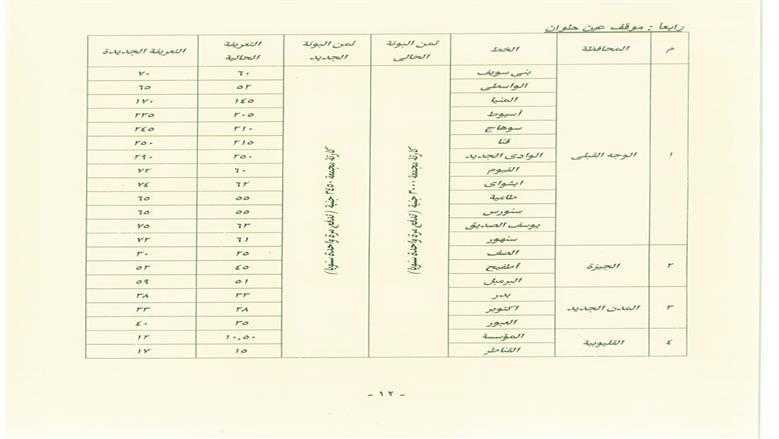 رابعاً : موقف عين حلوان
م المحافظة الخط ثمن البونة الحالى ثمن البونة الجديد التعريفة الحالية التعريفة الجديدة
١ الوجه القبلى كارتة مجمعة ٣٠٠٠ جنية ( تدفع مرة واحدة سنويا ) كارتة مجمعة ٣٤٥٠ جنية ( تدفع مرة واحدة سنويا )
بنى سويف ٦٠ ٧٠
الواسطى ٥٢ ٦٥
المنيا ١٤٥ ١٧٠
أسيوط ٢٠٥ ٢٣٥
سوهاج ٢١٠ ٢٤٥
قنا ٢١٥ ٢٥٠
الوادى الجديد ٢٥٠ ٢٩٠
الفيوم ٦٠ ٧٢
ابشواى ٦٢ ٧٤
طامية ٥٥ ٦٥
سنورس ٥٥ ٦٥
يوسف الصديق ٦٣ ٧٥
سنهور ٦١ ٧٢
٢ الجيزة
الصف ٢٥ ٣٠
أطفيح ٤٥ ٥٢
البرمبل ٥١ ٥٩
٣ المدن الجديد
بدر ٣٣ ٣٨
اكتوبر ٢٨ ٣٣
العبور ٣٥ ٤٠
٤ القليوبية
المؤسسة ١٠,٥٠ ١٢
القناطر ١٥ ١٧
- ١٢ -